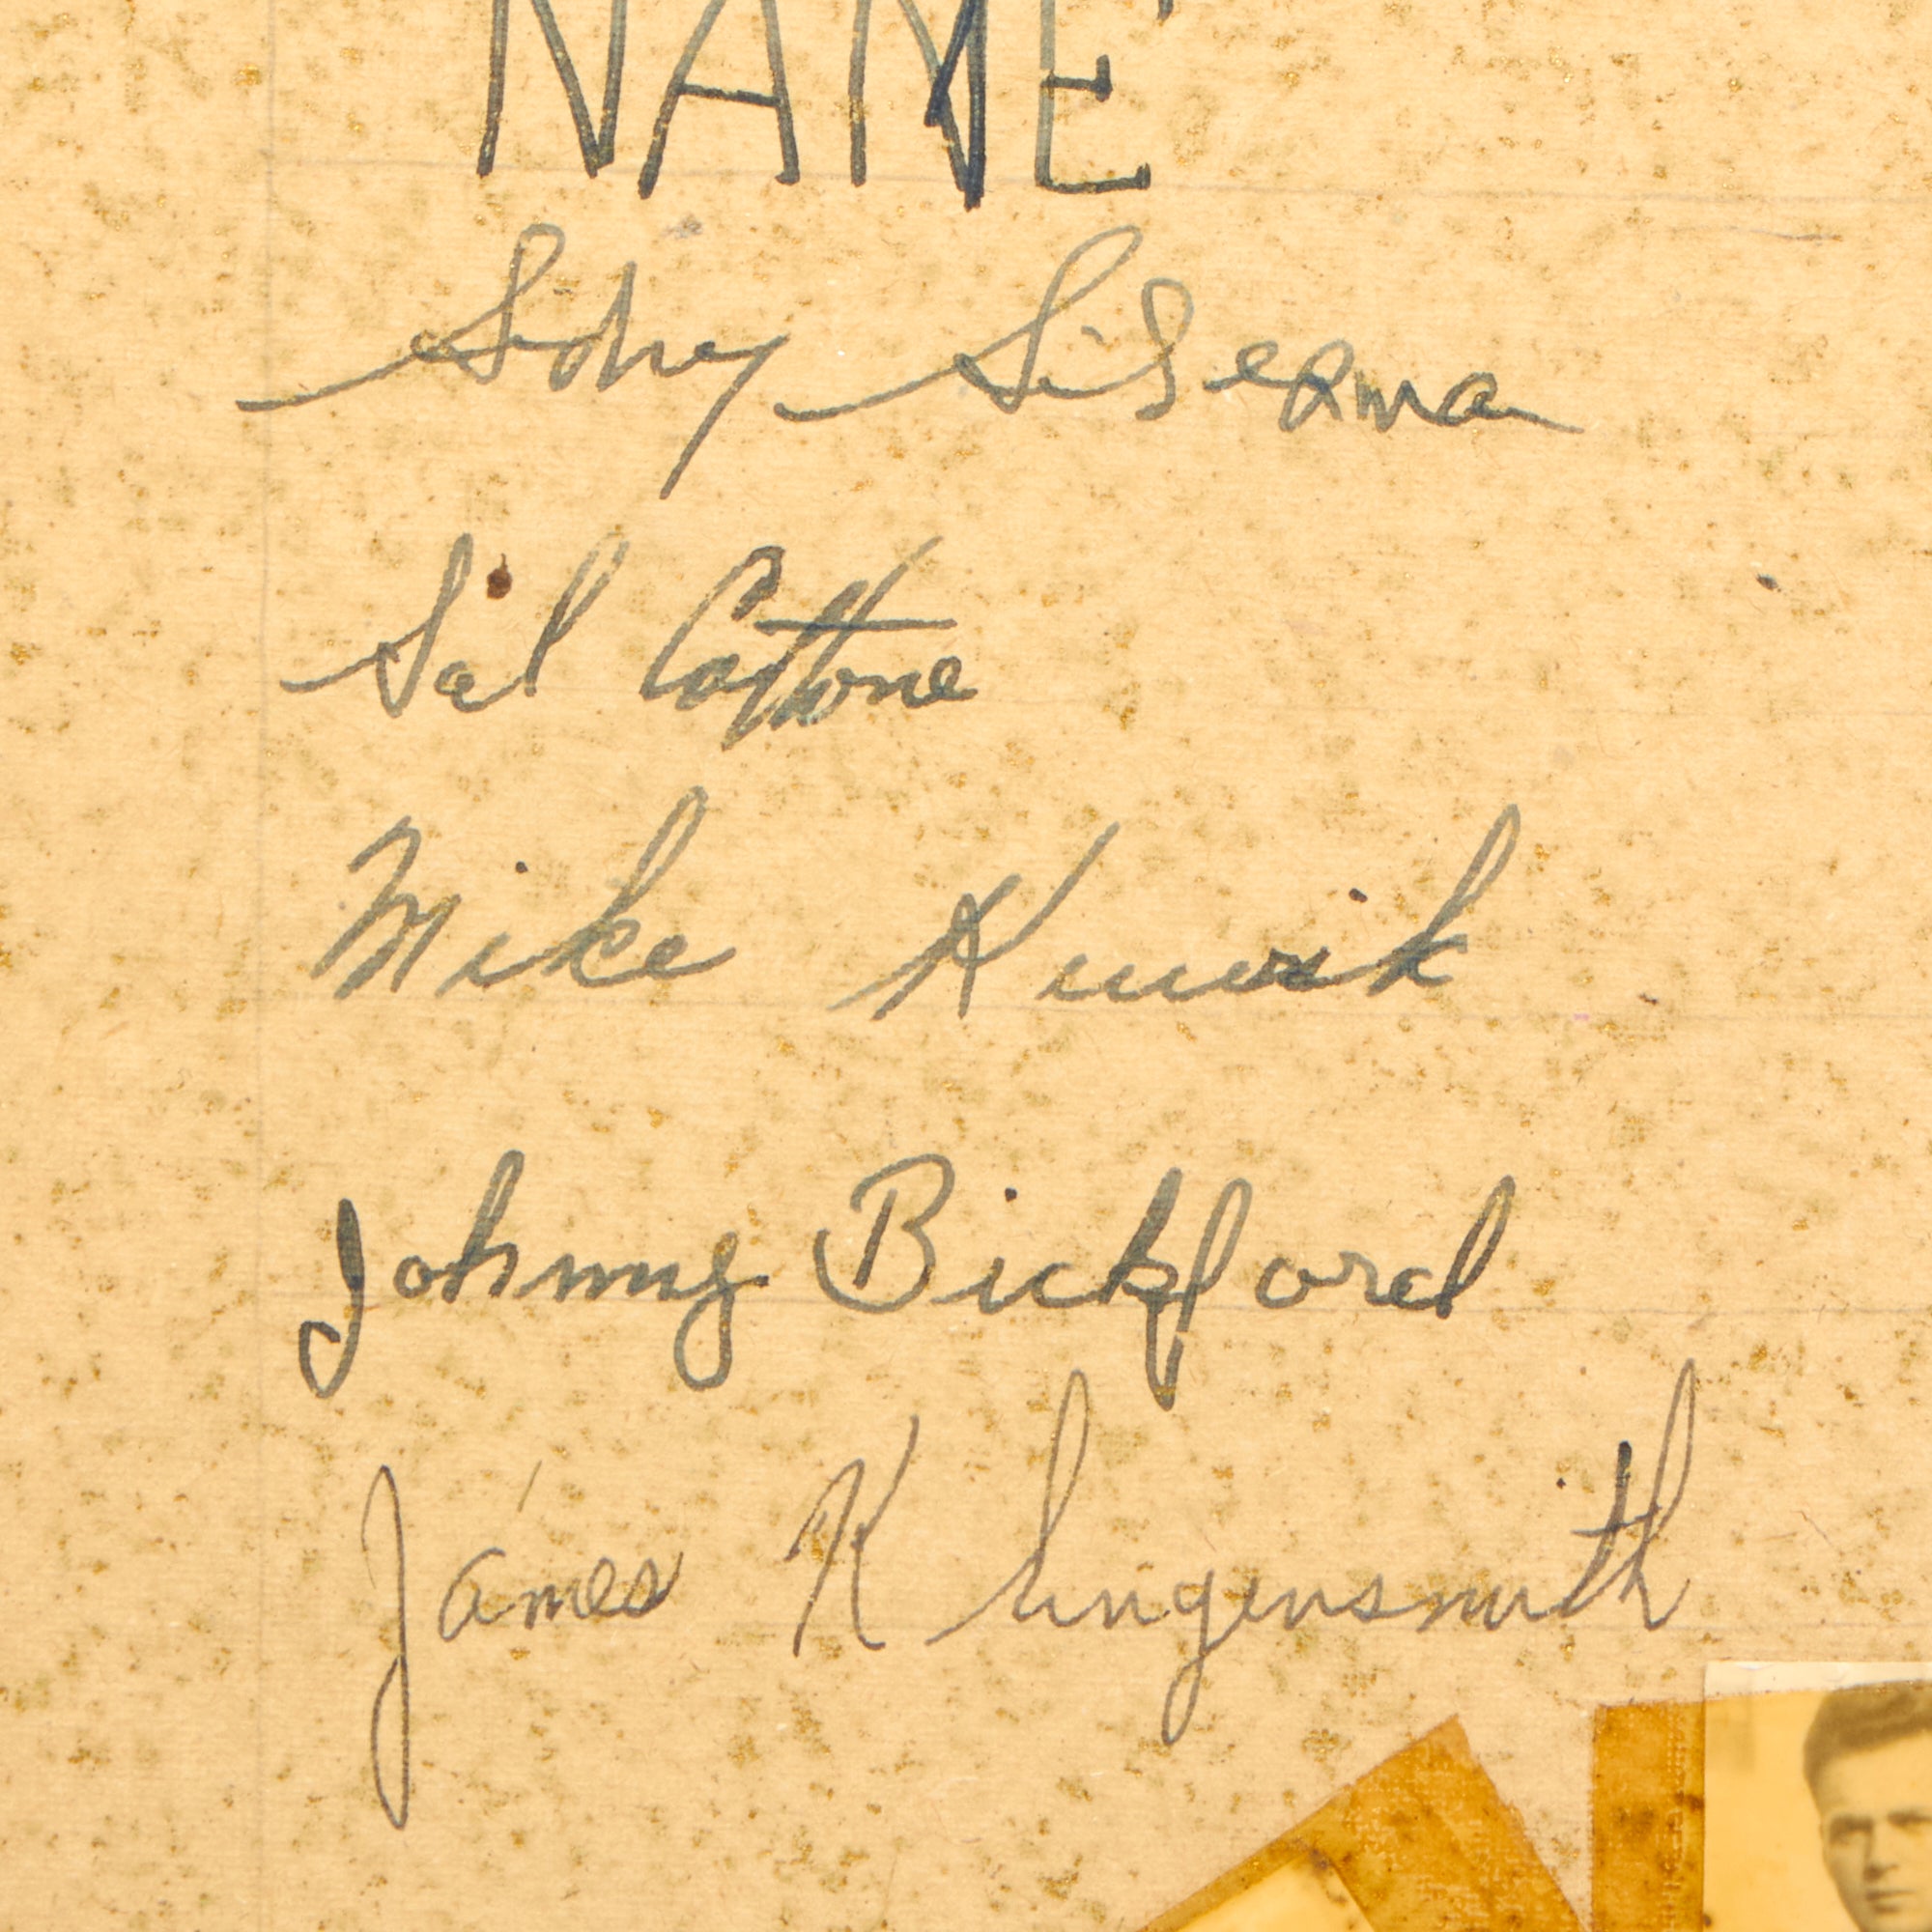 NAME
Sidney Silverman
Sal Cottone
Mike
Johnny Bickford
James Klingensmith